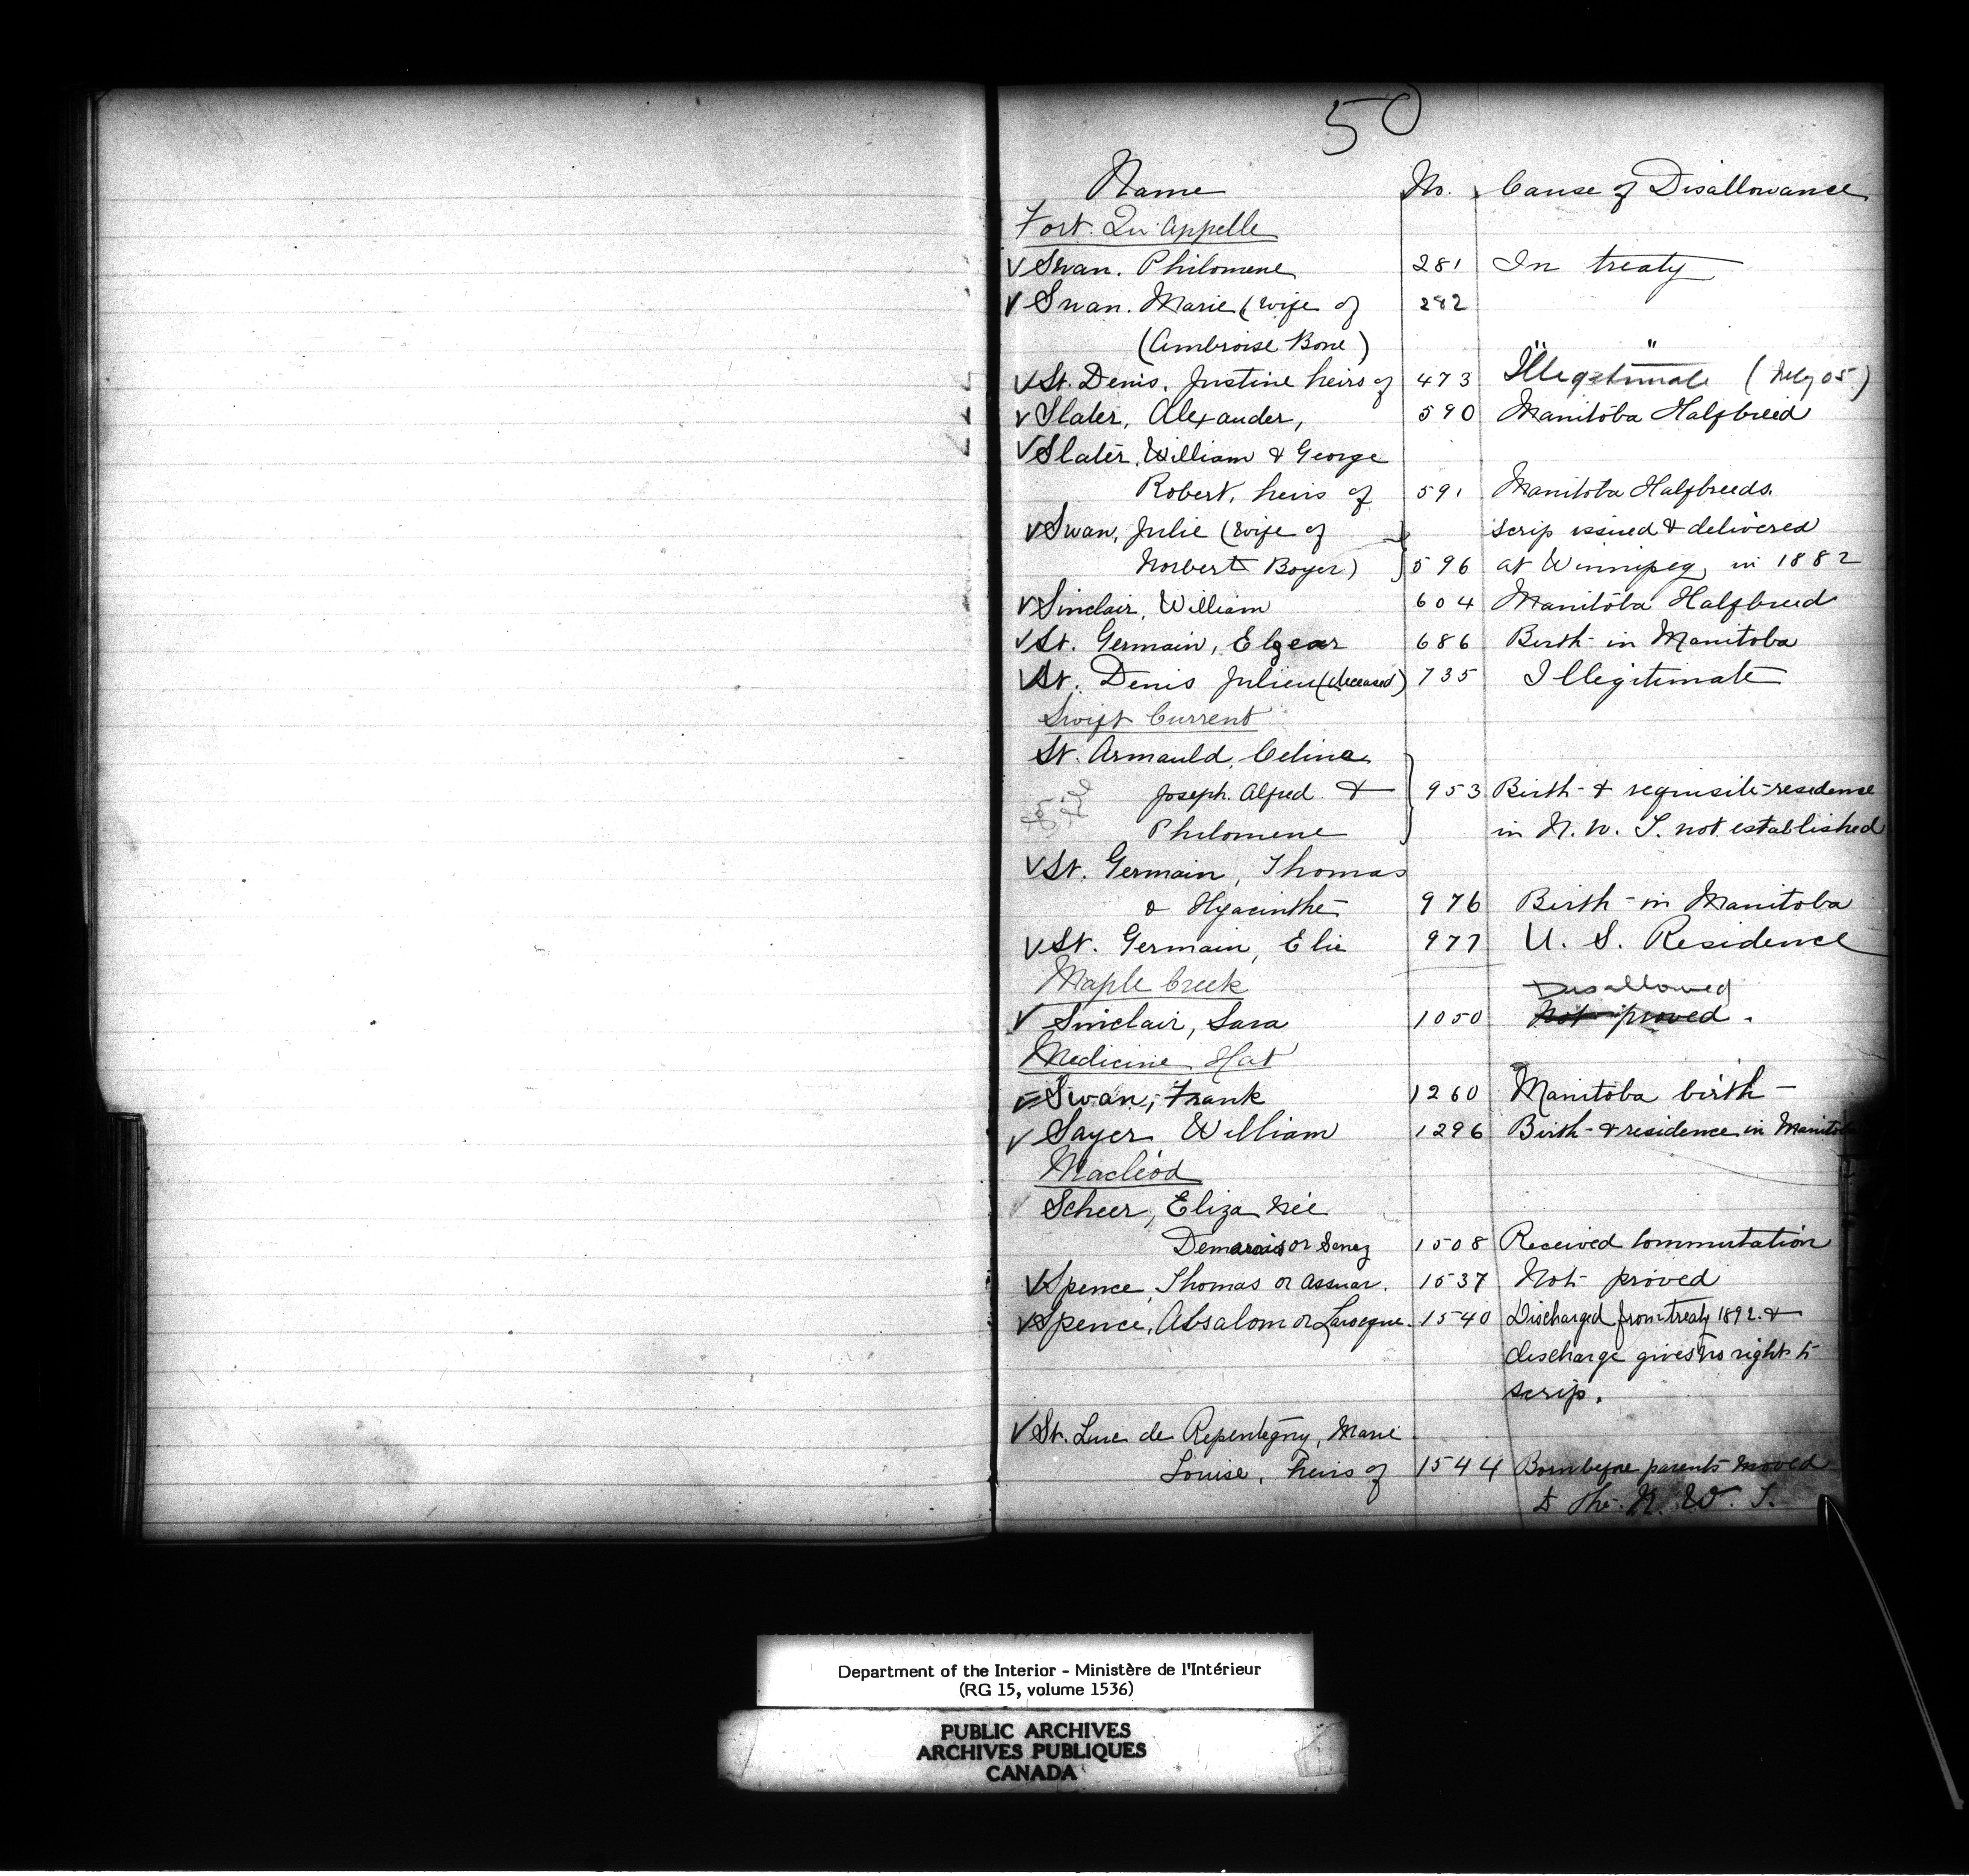 50
Name No. Cause of Disallowance
Fort Qu'Appelle
V Swan. Philomene 281 In treaty
V Swan. Marie (wife of 282
(Ambroise Bone) " "
V St. Denis. Justine heirs of 473 Illegitimate ( 05)
V Slater, Alexander, 590 Manitoba Halfbreed
V Slater, William & George
Robert, heirs of 591 Manitoba Halfbreeds.
V Swan, Julie (wife of scrip issued & delivered
Norbert Boyer) 596 at Winnipeg, in 1882
V Sinclair, William 604 Manitoba Halfbreed
V St. Germain, Elzear 686 Birth in Manitoba
V St. Denis Julien (deceased) 735 Illegitimate
Swift Current
St. Armauld, Celina
Joseph. Alfred & 953 Birth & requisite residence
Philomene in N. W. T. not established
V St. Germain, Thomas
& Hyacinthe 976 Birth in Manitoba
V St. Germain, Elie 977 U. S. Residence
Maple Creek Disallowed
V Sinclair, Sara 1050 Not proved.
Medicine Hat
V Swan, Frank 1260 Manitoba birth -
V Sayer William 1296 Birth & residence in Manitoba
Macleod
V Scheer, Eliza Née
Demarais or Senez 1508 Received Commutation
V Spence, Thomas or Assuar. 1537 Not proved
V Spence, Absalom or Larocque. 1540 Discharged from treaty 1892. &
discharge gives no right to
scrip.
V St. Luc de Repentegny, Marie
Louise, heirs of 1544 Born before parents moved
to the N. W. T.
Department of the Interior - Ministère de l'Intérieur
(RG 15, volume 1536)
PUBLIC ARCHIVES
ARCHIVES PUBLIQUES
CANADA